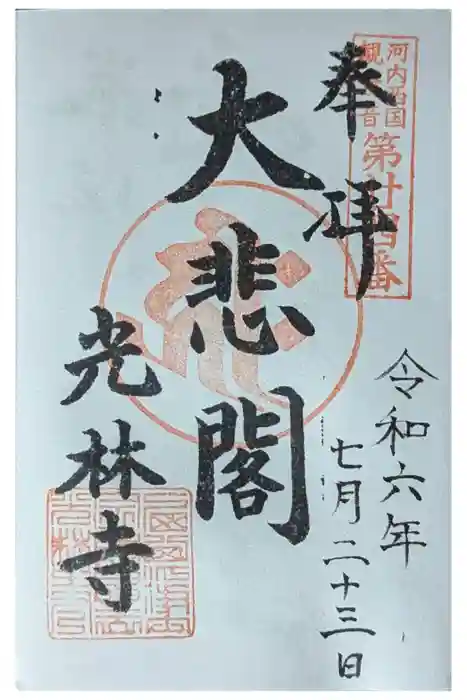 河内西国
観音
第廿四番
奉拝
大悲閣
光林寺
令和六年
七月二十三日